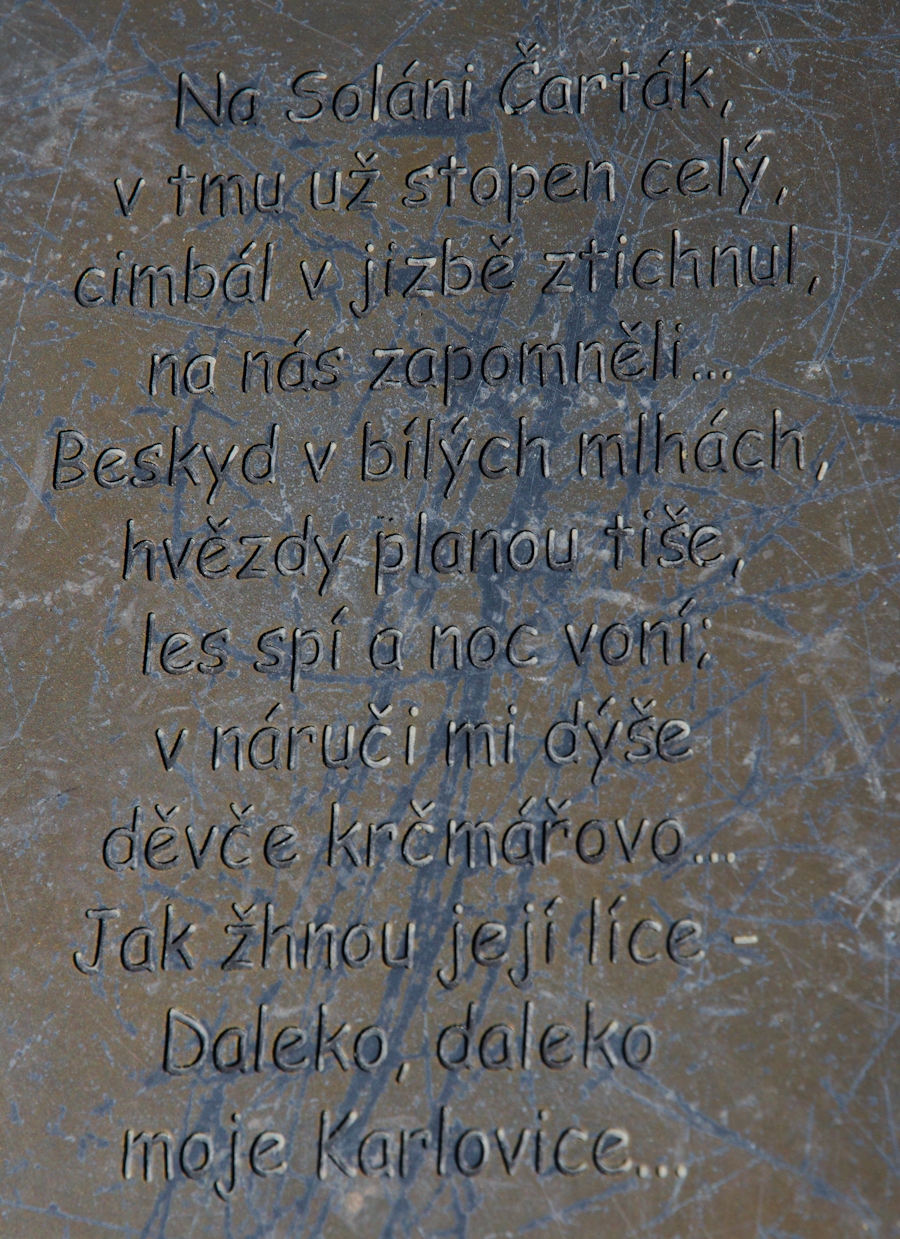 Na Soláni Čarták,
v tmu už stopen celý,
cimbál v jizbě ztichnul,
na nás zapomněli...
Beskyd v bílých mlhách,
hvězdy planou tiše,
les spí a noc voní;
v náruči mi dýše
děvče krčmářovo...
Jak žhnou její líce -
Daleko, daleko
moje Karlovice...